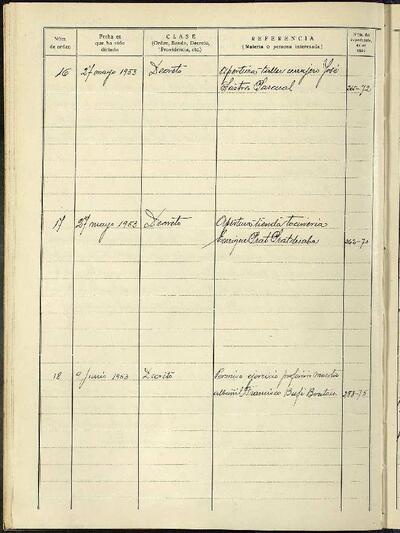 Núm. de orden
Fecha en que ha sido dictado
CLASE
(Orden, Bando, Decreto, Providencia, etc.)
REFERENCIA
(Materia o persona interesada)
16 27 mayo 1953 Decreto Apertura taller cerrajero José
Sastre Pascual 265-72
17 27 mayo 1953 Decreto Apertura tienda tocineria
Enrique Prat Pratdesaba
18 Junio 1953 Decreto Permiso ejercicio profesión maestro
albañil Francisco Bufí